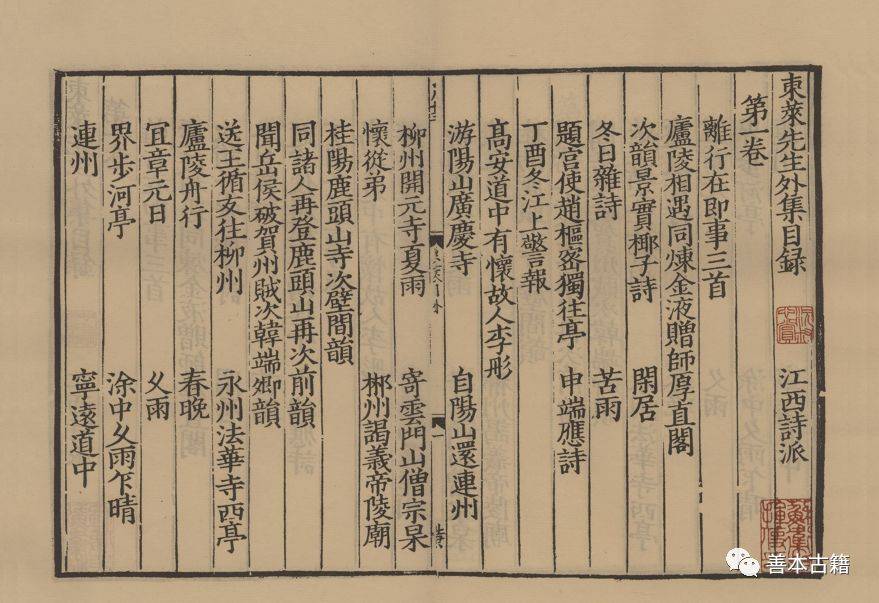 東萊先生外集目録 江西詩派
第一卷
離行在即事三首
廬陵相遇同煉金液贈師厚直閣
次韻景實椰子詩 閑居
冬日雜詩 苦雨
題宫使趙樞密獨往亭 申端應詩
丁酉冬江上警報
高安道中有懷故人李彤
游陽山廣慶寺 自陽山還連州
柳州開元寺夏雨 寄雲門山僧宗杲
懷從弟 郴州謁義帝陵廟
桂陽鹿頭山寺次壁間韻
同諸人再登鹿頭山再次前韻
聞岳侯破賀州賊次韓端卿韻
送王循友往柳州 永州法華寺西亭
廬陵舟行 春晚
宜章元日 久雨
界步河亭 涂中久雨乍晴
連州 寧遠道中
一
善本古籍